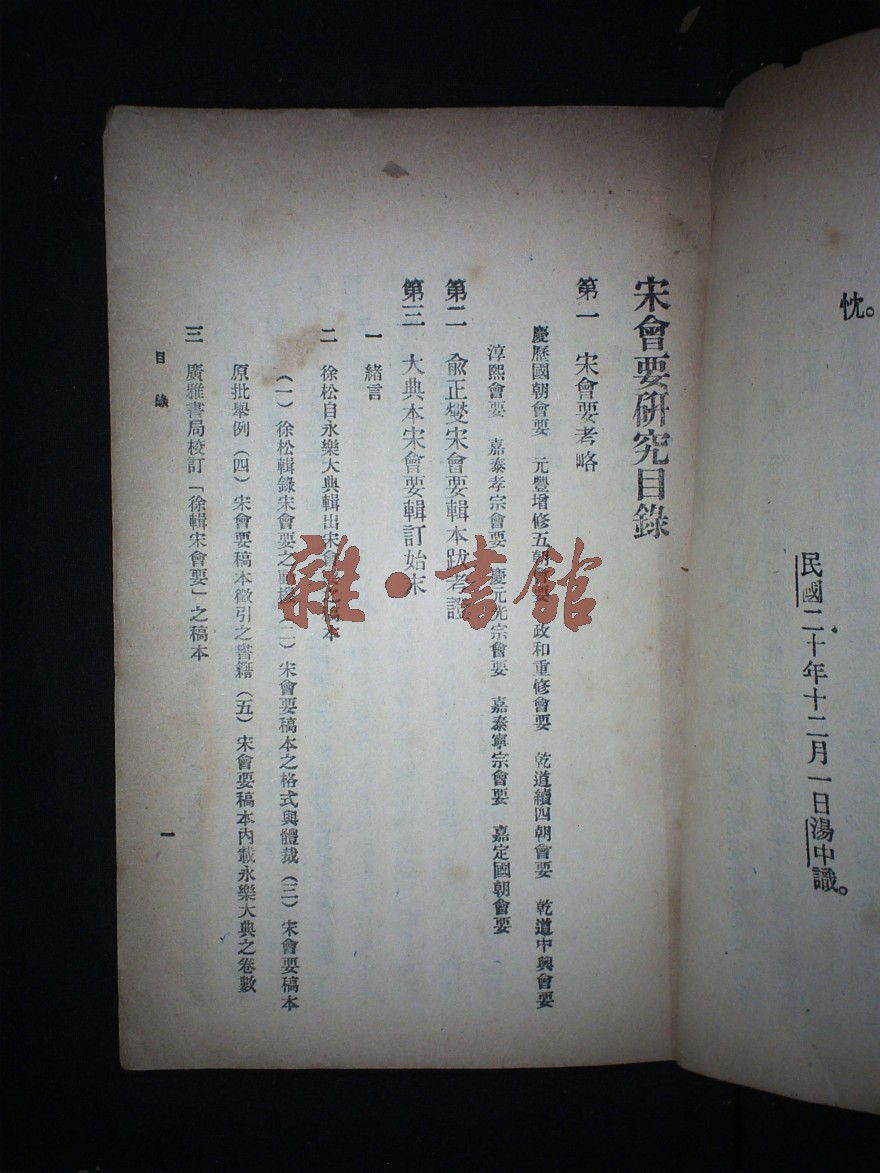 忱。
民國二十年十二月一日湯中識。
宋會要研究目錄
第一 宋會要考略
慶歷國朝會要 元豐增修五朝會要 政和重修會要 乾道續四朝會要 乾道中興會要
淳熙會要 嘉泰孝宗會要 慶元光宗會要 嘉泰寧宗會要 嘉定國朝會要
第二 俞正燮宋會要輯本跋考證
第三 大典本宋會要輯訂始末
一 緒言
二 徐松自永樂大典輯出宋會要之稿本
(一)徐松輯錄宋會要之動機(二)宋會要稿本之格式與體裁(三)宋會要稿本
原批舉例(四)宋會要稿本徵引之書籍(五)宋會要稿本內載永樂大典之卷數
三 廣雅書局校訂「徐輯宋會要」之稿本
目錄
一
雜·書館